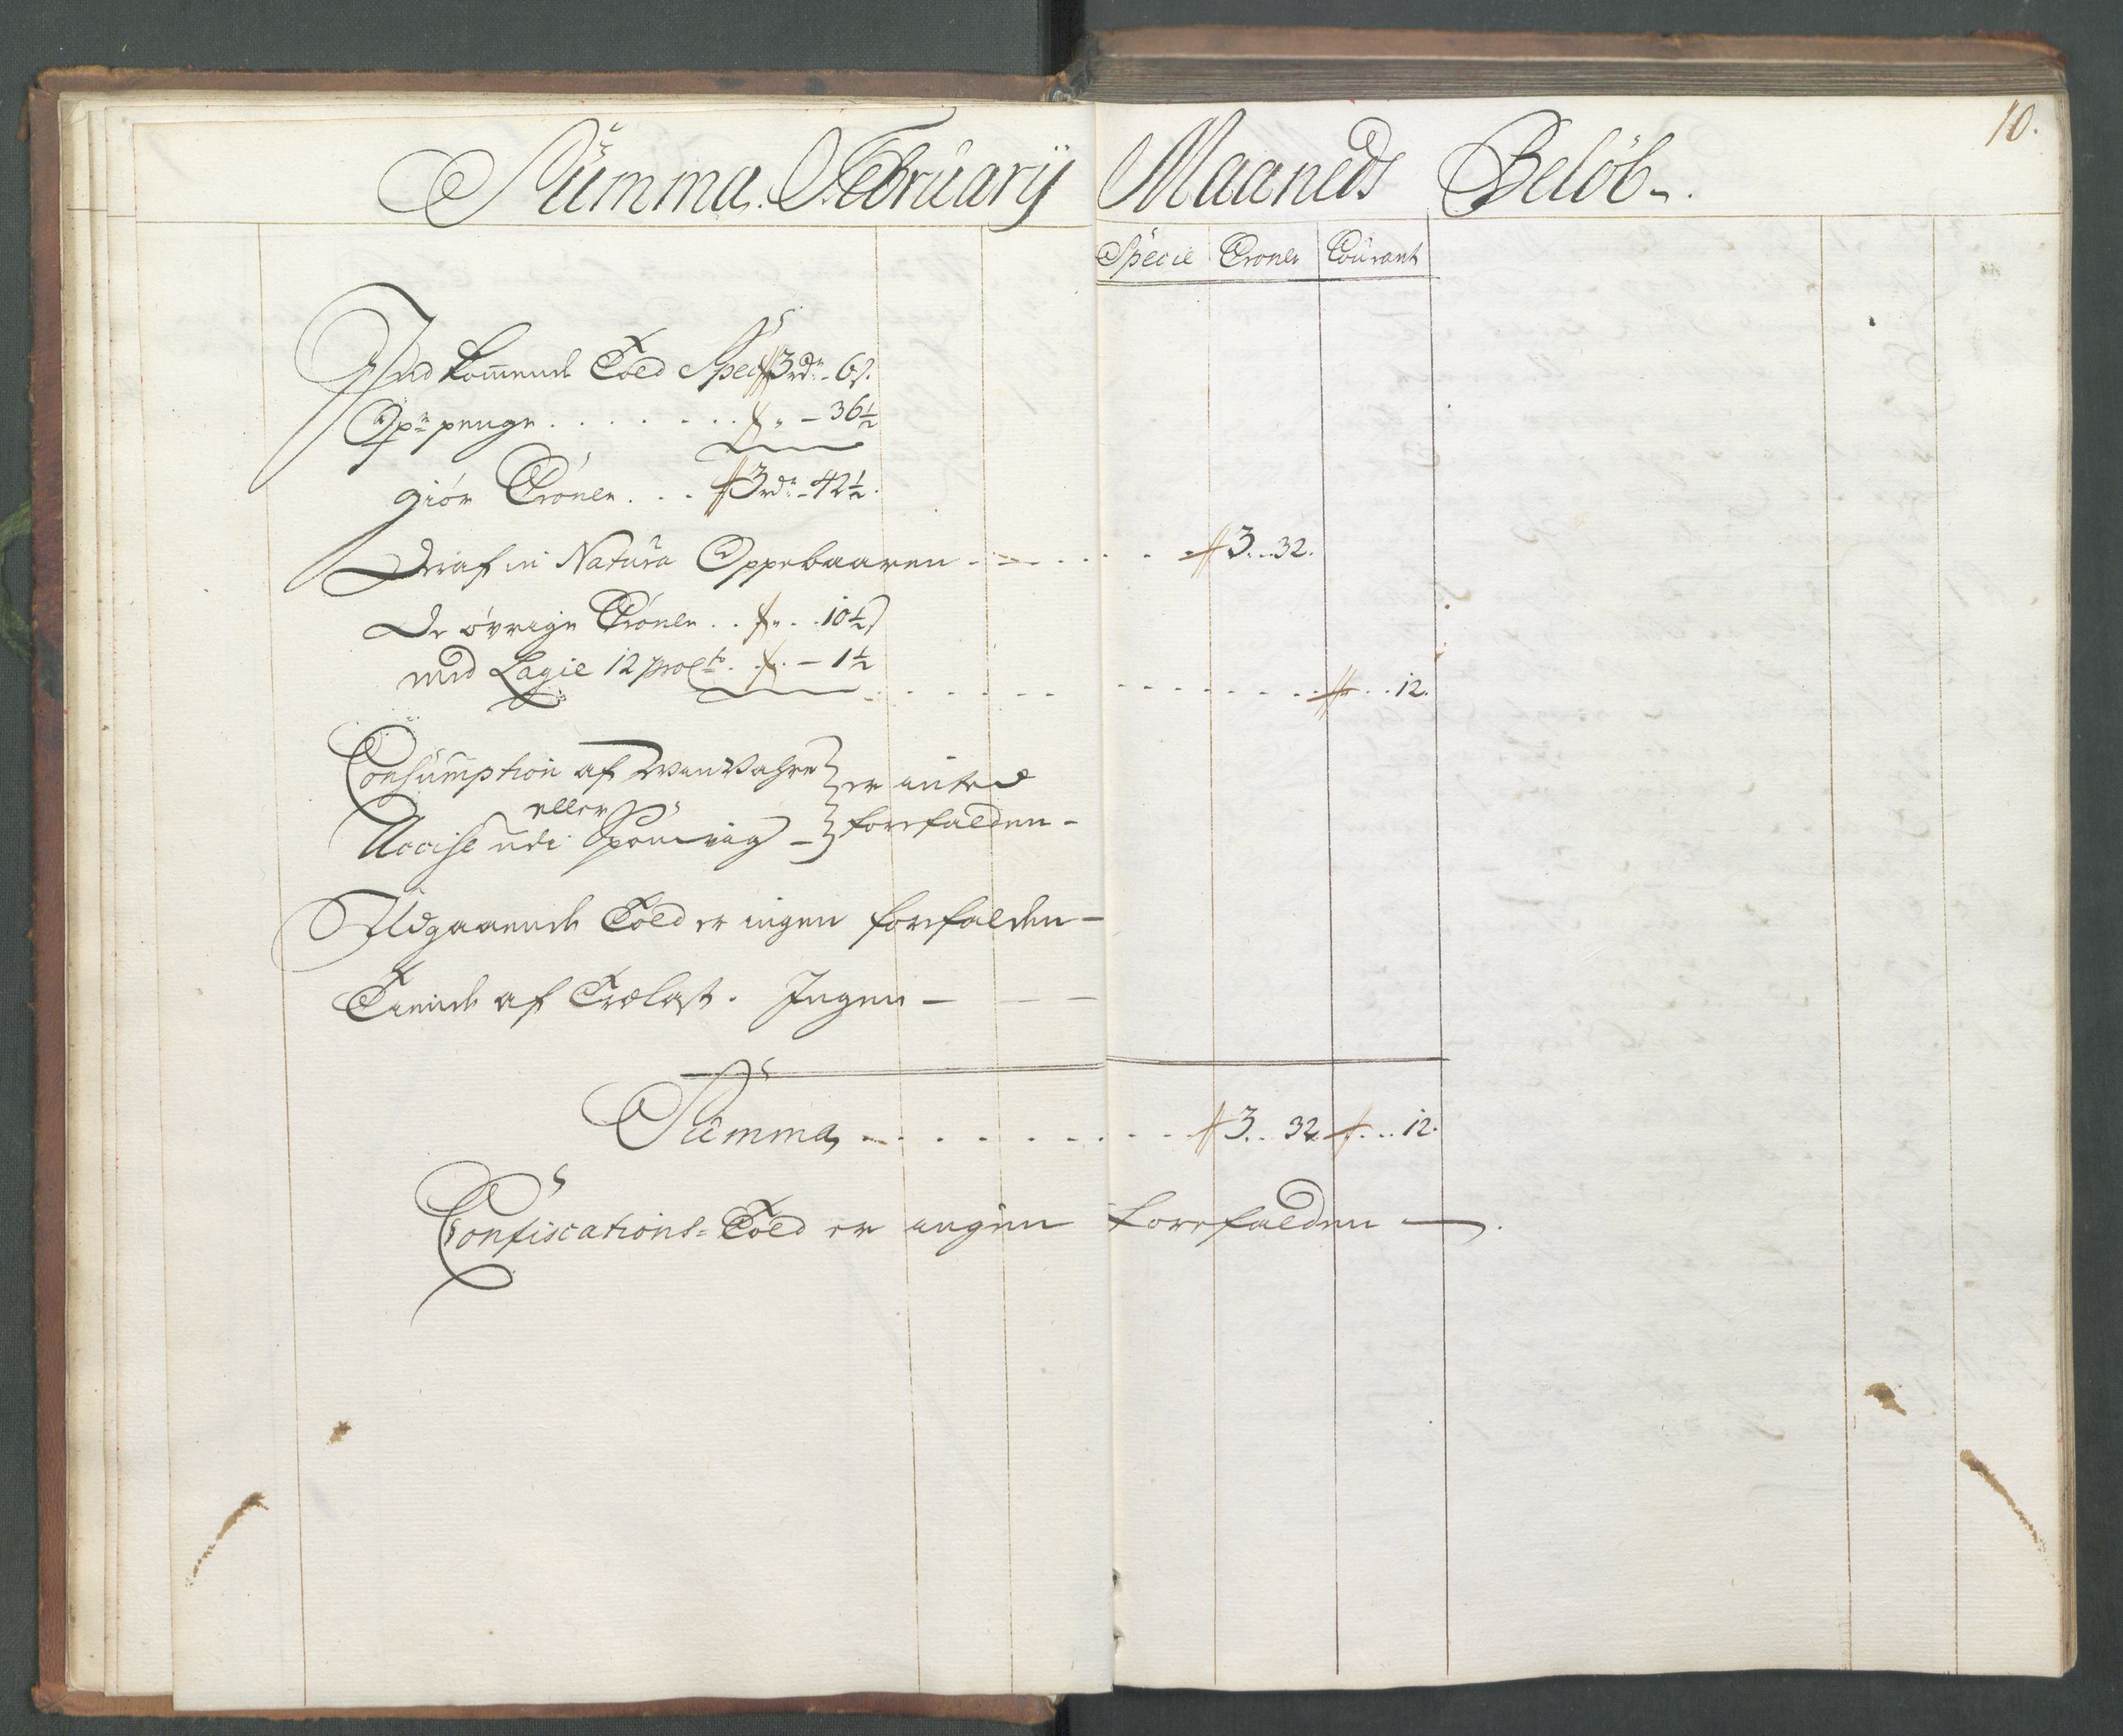 10.
Summa Februarÿ Maaneds Beløb.
Specie Croner Courant
Ind kommende Told Spec 3 rdr - 6 s.
Opr penge . . . . . . . " - 36 1/2
giør Croner . . . 3 rdr - 42 1/2.
Deraf in Natura Oppebaaren - - - - . . 3 . . 32.
De øvrige Croner . . " . . 10 1/2 s
med Lagie 12 proCto . . - 1 1/2 . . . . . . . . . . . . 12.
Consumption af Vahre } er inted
eller
Accise udi } forefalden -
Udgaaende Told er ingen forefalden -
Tiende af Trælast. Ingen - - -
Summa - . . . . . . . . 3 . . 32 . . . 12.
Confiscations-Told er ingen forefalden -.